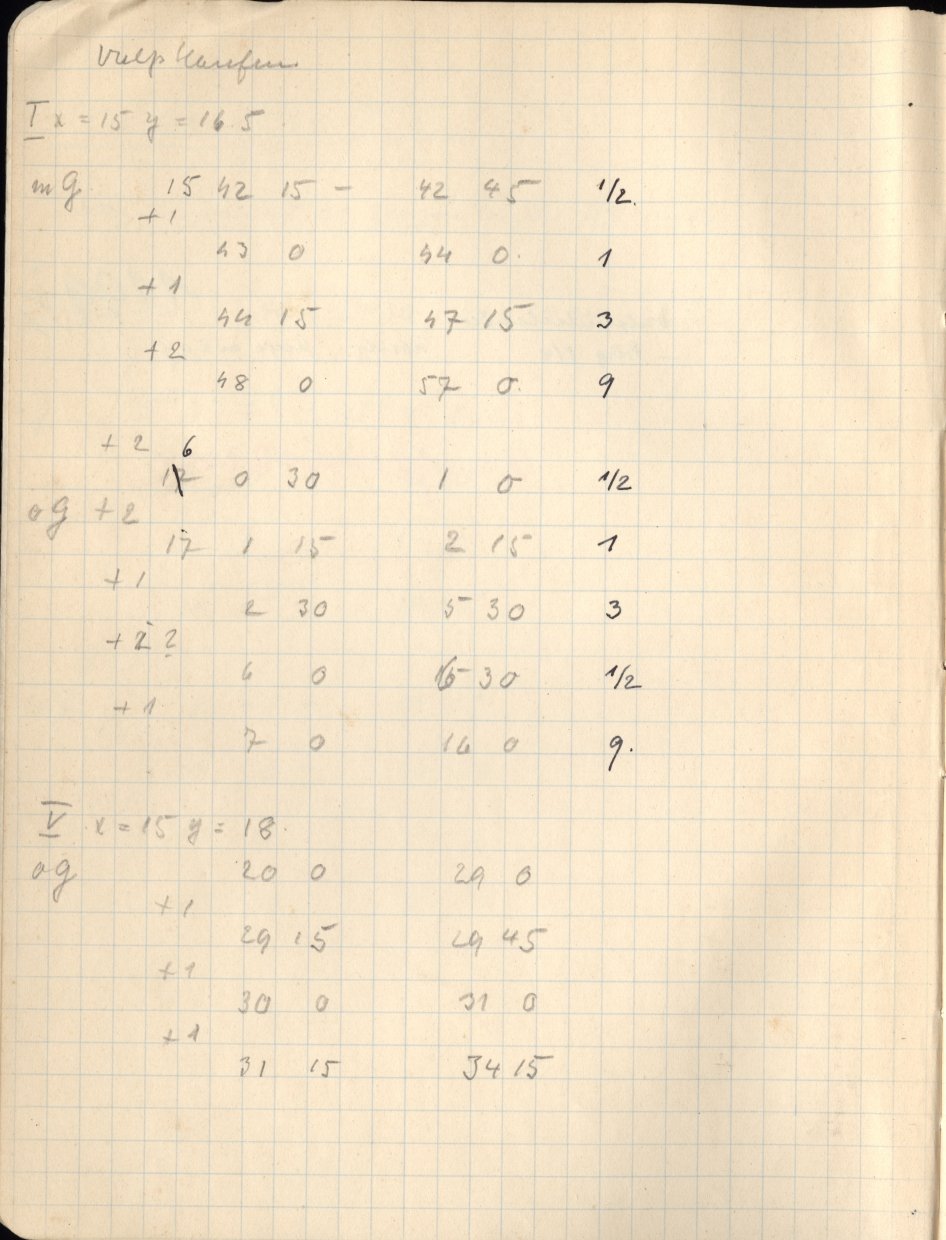 Vulp Haufen
I x = 15 y = 16.5
mG 15 42 15 - 42 45 1/2.
+1
43 0 44 0. 1
+1
44 15 47 15 3
+2
48 0 57 0. 9
+2 6
17 0 30 1 0 1/2
oG +2
17 1 15 2 15 1
+1
2 30 5 30 3
+2 2
6 0 6 30 1/2
+1
7 0 16 0 9.
V x = 15 y = 18.
oG 20 0 29 0
+1
29 15 29 45
+1
30 0 31 0
+1
31 15 34 15